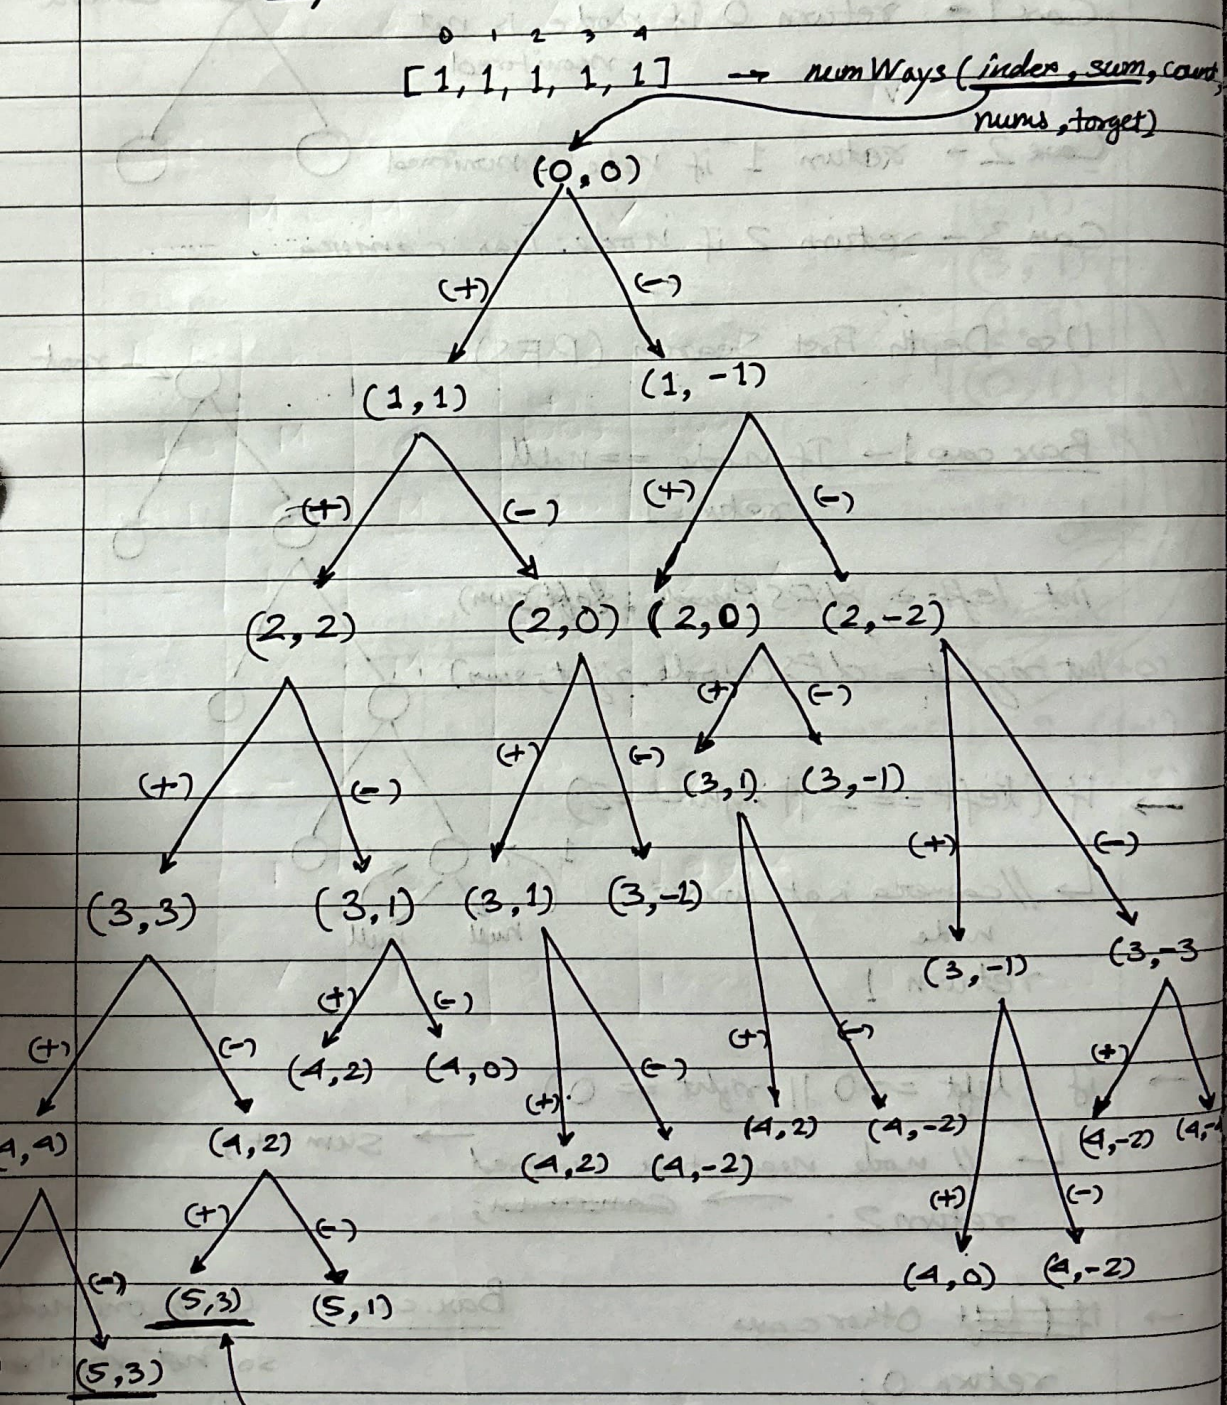 0 1 2 3 4
[1, 1, 1, 1, 1] → numWays (index, sum, count,
nums, target)
(0, 0)
(+) (-)
(1, 1) (1, -1)
(+) (-) (+) (-)
(2, 2) (2, 0) (2, 0) (2, -2)
(+) (-)
(+) (-) (+) (-)
(3, 1) (3, -1)
(+) (-)
(3, 3) (3, 1) (3, 1) (3, -1)
(3, -1) (3, -3
(+) (-) (+) (-) (+) (-) (+) (-) (+)
(4, 2) (4, 0)
(4, 4) (4, 2) (4, 2) (4, -2) (4, 2) (4, -2) (4, -2)
(+) (-) (+) (-)
(4, 0) (4, -2)
(-) (5, 3) (5, 1)
(5, 3)